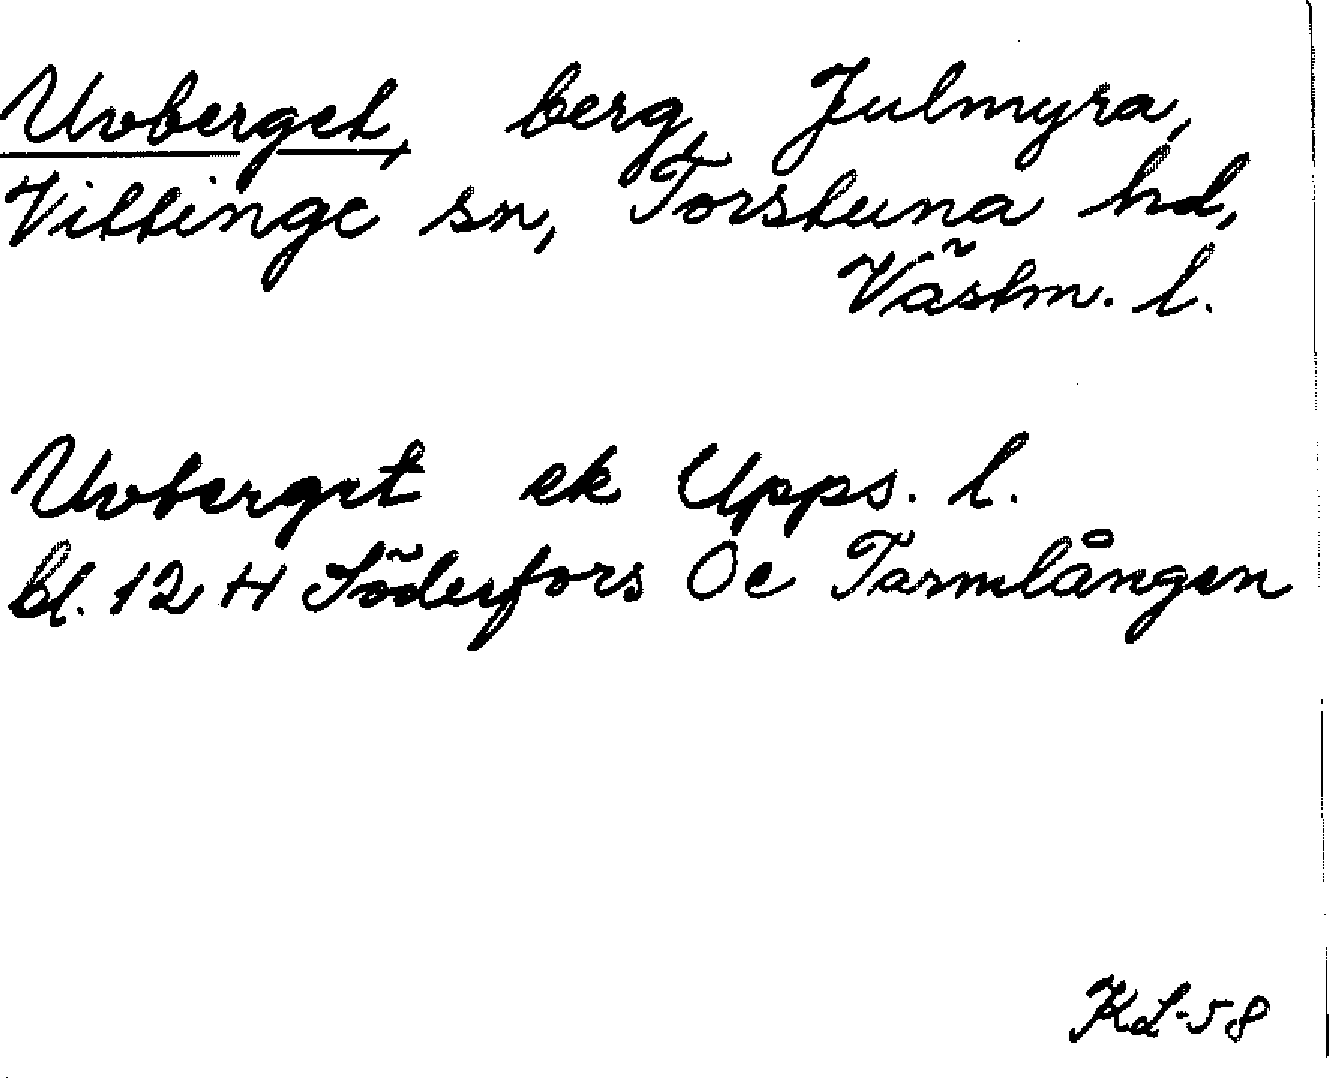 Uvberget, berg, Julmyra,
Vittinge sn, Torstuna hd,
Västm. l.
Uvberget ek Upps. l.
bl. 12 H Söderfors 0c Tarmlången
KL-58